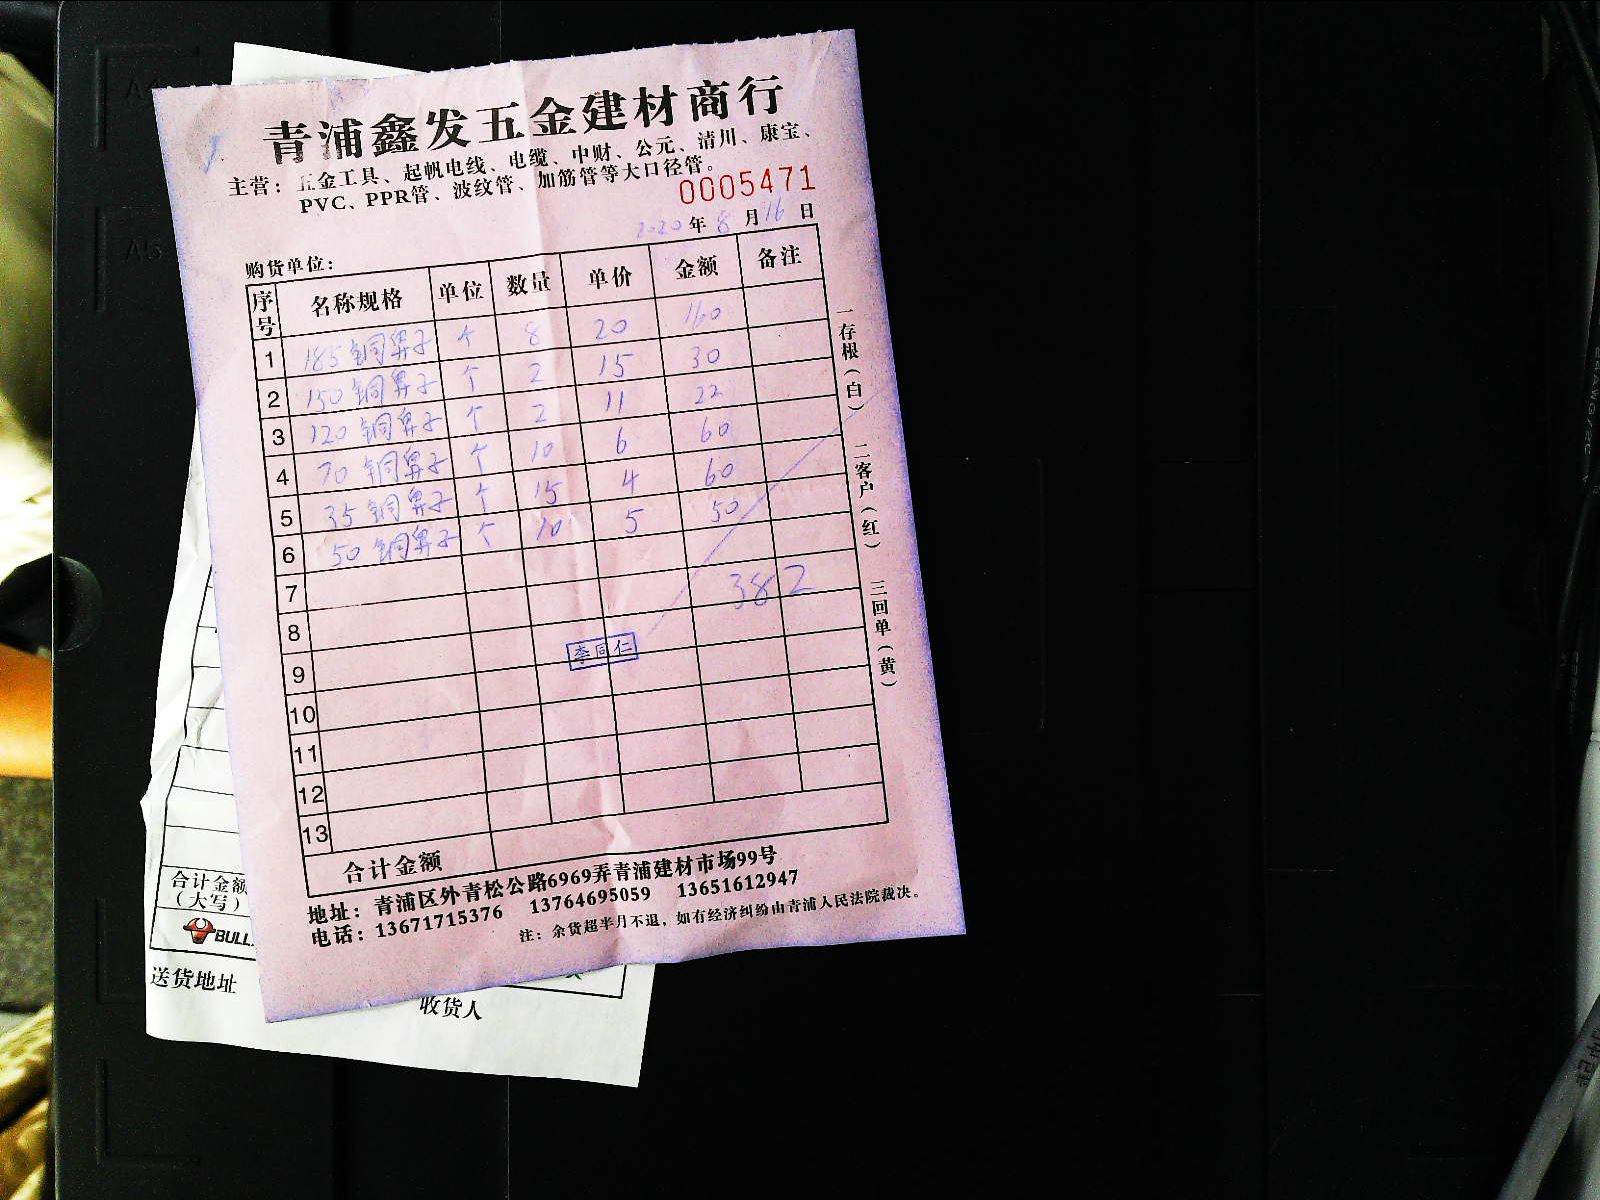 青浦鑫发五金建材商行
主营：五金工具、起帆电线、电缆、中财、公元、清川、康宝、
PVC、PPR管、波纹管、加筋管等大口径管。
0005471
2020年8月16日
购货单位：
序号 名称规格 单位 数量 单价 金额 备注
1 185铜鼻子 个 8 20 160
2 150铜鼻子 个 2 15 30
3 120铜鼻子 个 2 11 22
4 70铜鼻子 个 10 6 60
5 35铜鼻子 个 15 4 60
6 50铜鼻子 个 10 5 50
7
382
8
9
李同仁
10
11
12
13
合计金额
地址：青浦区外青松公路6969弄青浦建材市场99号
电话：13671715376 13764695059 13651612947
注：余货超半月不退，如有经济纠纷由青浦人民法院裁决。
一存根（白） 二客户（红） 三回单（黄）
合计金额
（大写）
BULL
送货地址
收货人